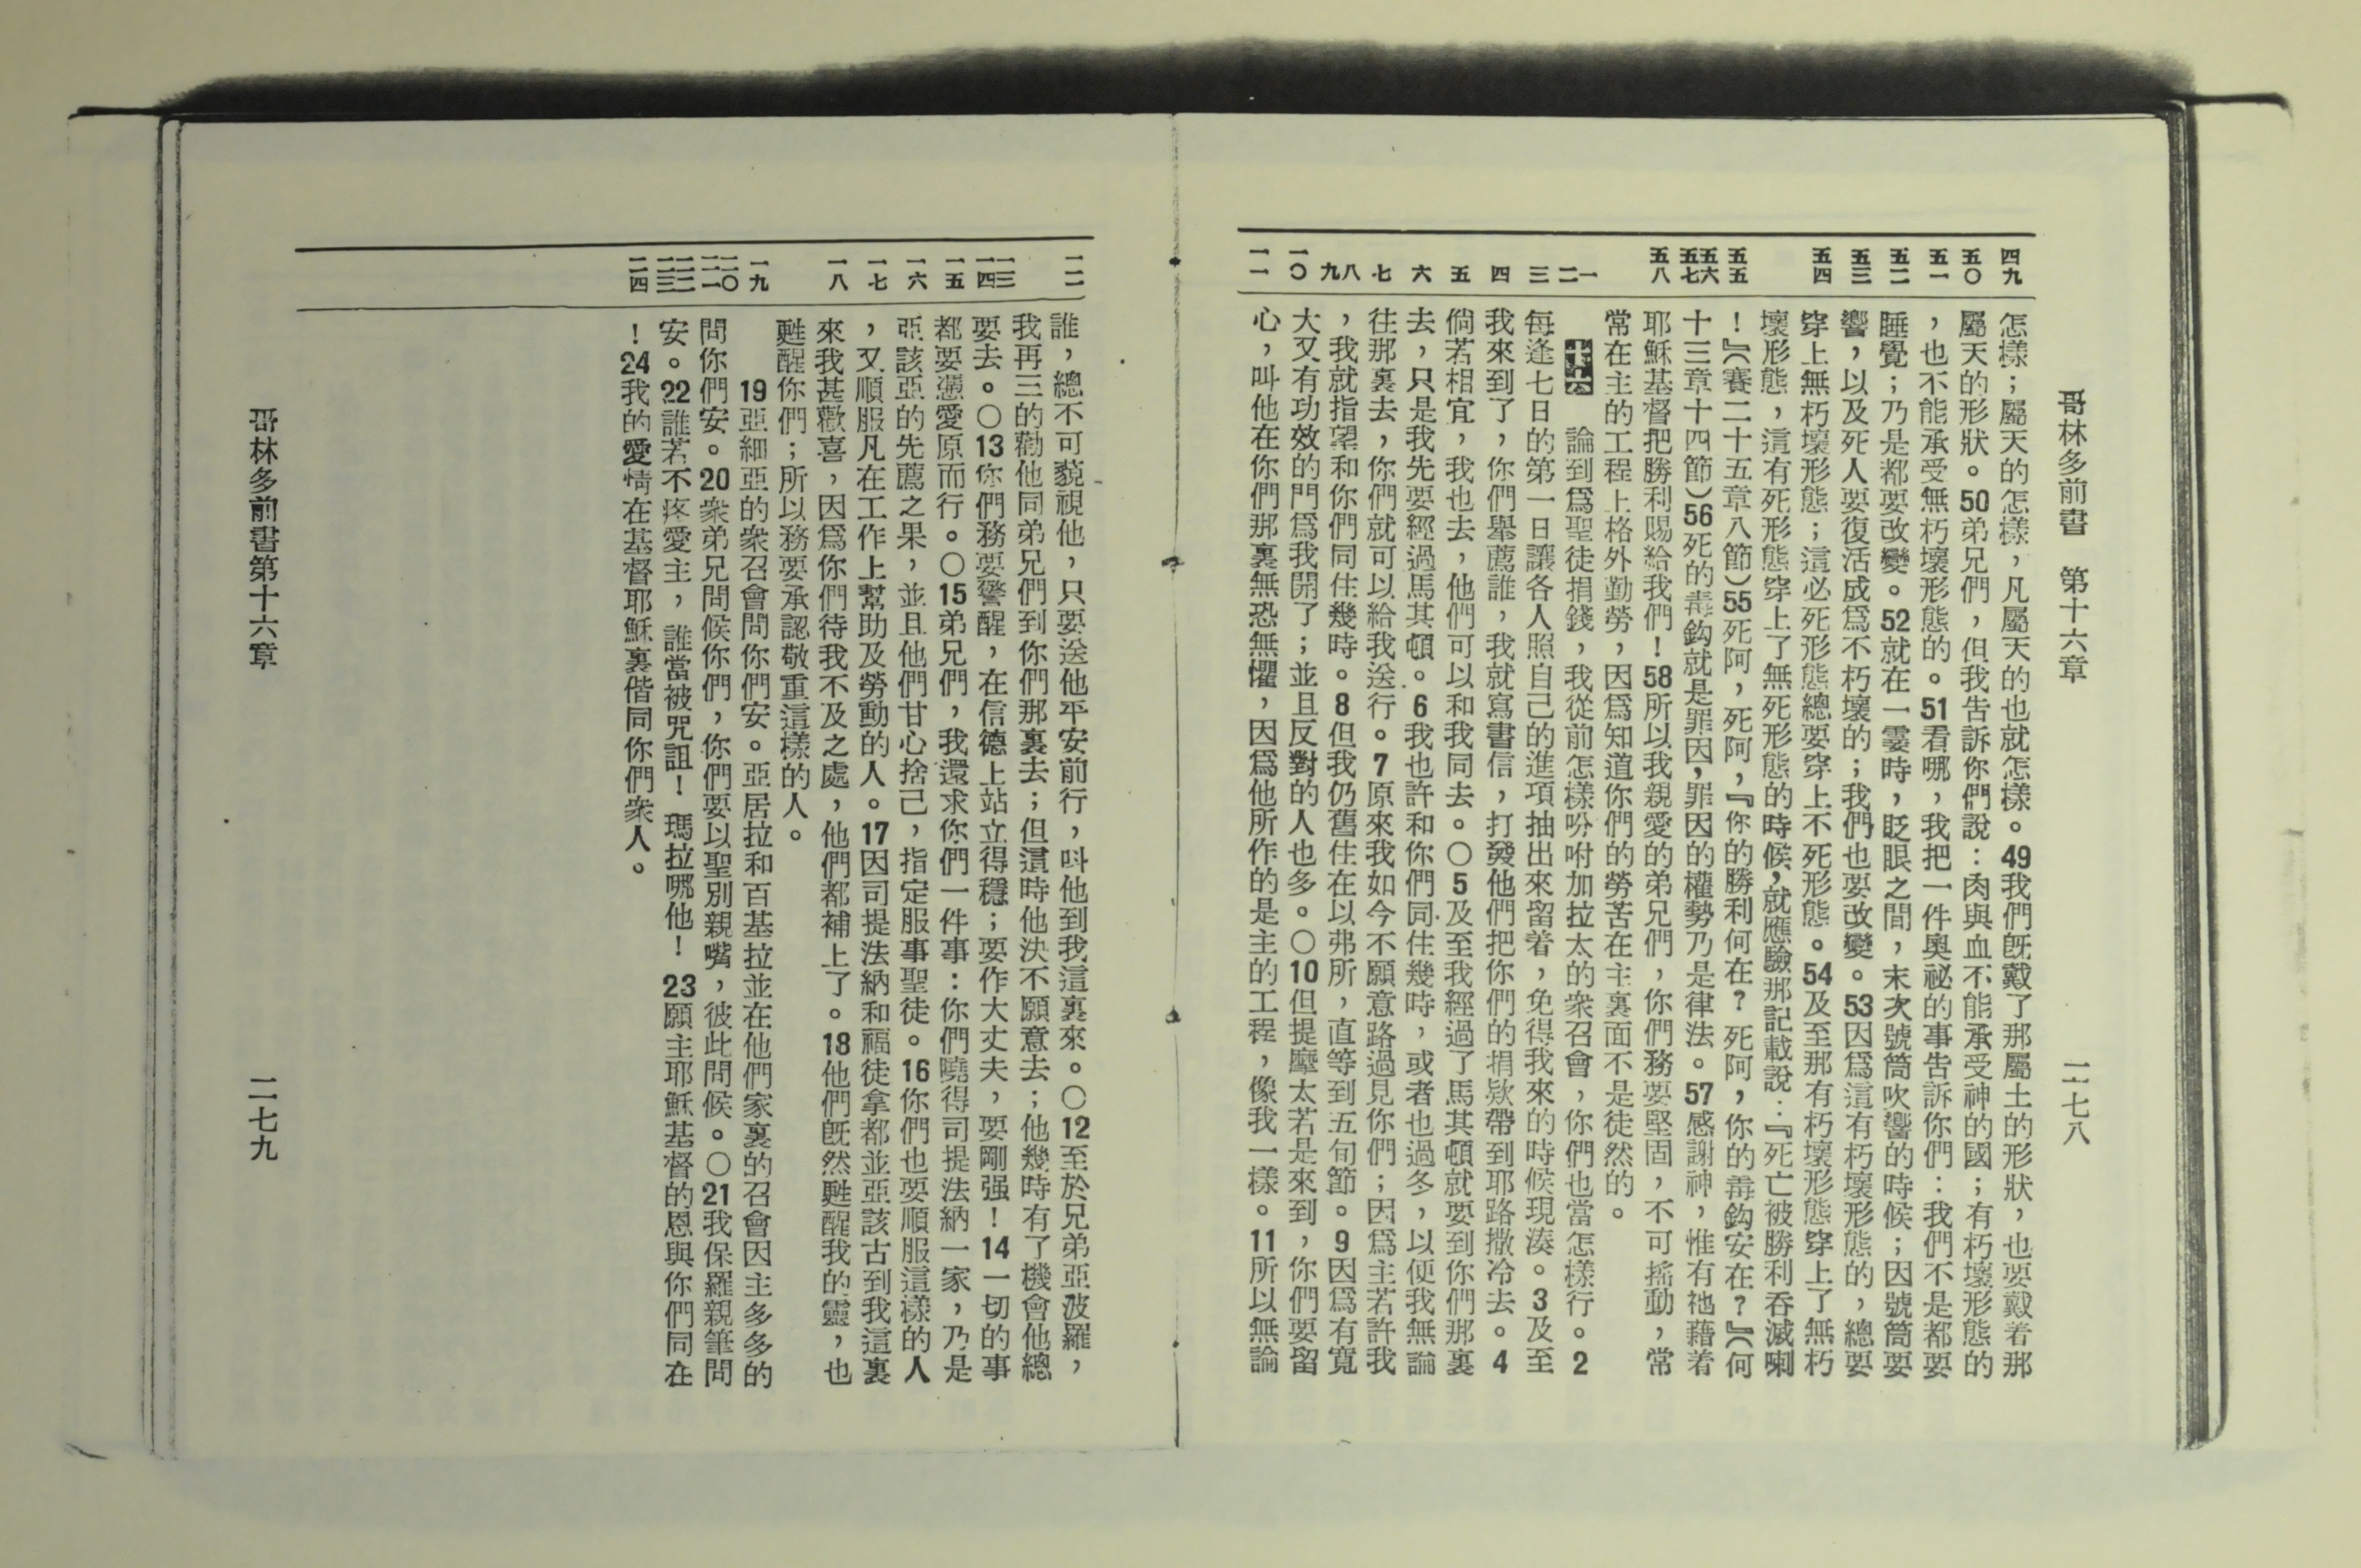 哥林多前書　第十六章　二七八
四九
五〇
五一
五二
五三
五四
五五
五六
五七
五八
一
二
三
四
五
六
七
八
九
一〇
一一
怎樣；屬天的怎樣，凡屬天的也就怎樣。49我們旣戴了那屬土的形狀，也要戴着那
屬天的形狀。50弟兄們，但我告訴你們說：肉與血不能承受神的國；有朽壞形態的
，也不能承受無朽壞形態的。51看哪，我把一件奧祕的事告訴你們：我們不是都要
睡覺；乃是都要改變。52就在一霎時，眨眼之間，末次號筒吹響的時候；因號筒要
響，以及死人要復活成爲不朽壞的；我們也要改變。53因爲這有朽壞形態的，總要
穿上無朽壞形態；這必死形態總要穿上不死形態。54及至那有朽壞形態穿上了無朽
壞形態，這有死形態穿上了無死形態的時候，就應驗那記載說：『死亡被勝利吞滅喇
！』（賽二十五章八節）55死阿，死阿，『你的勝利何在？死阿，你的毒鈎安在？』（何
十三章十四節）56死的毒鈎就是罪因，罪因的權勢乃是律法。57感謝神，惟有祂藉着
耶穌基督把勝利賜給我們！58所以我親愛的弟兄們，你們務要堅固，不可搖動，常
常在主的工程上格外勤勞，因爲知道你們的勞苦在主裏面不是徒然的。
十六　論到爲聖徒捐錢，我從前怎樣吩咐加拉太的衆召會，你們也當怎樣行。2
每逢七日的第一日讓各人照自己的進項抽出來留着，免得我來的時候現湊。3及至
我來到了，你們舉薦誰，我就寫書信，打發他們把你們的捐欵帶到耶路撒冷去。4
倘若相宜，我也去，他們可以和我同去。〇5及至我經過了馬其頓就要到你們那裏
去，只是我先要經過馬其頓。6我也許和你們同住幾時，或者也過冬，以便我無論
往那裏去，你們就可以給我送行。7原來我如今不願意路過見你們；因爲主若許我
，我就指望和你們同住幾時。8但我仍舊住在以弗所，直等到五旬節。9因爲有寬
大又有功效的門爲我開了；並且反對的人也多。〇10但提摩太若是來到，你們要留
心，叫他在你們那裏無恐無懼，因爲他所作的是主的工程，像我一樣。11所以無論
一二
一三
一四
一五
一六
一七
一八
一九
二〇
二一
二二
二三
二四
誰，總不可藐視他，只要送他平安前行，叫他到我這裏來。〇12至於兄弟亞波羅，
我再三的勸他同弟兄們到你們那裏去；但這時他決不願意去；他幾時有了機會他總
要去。〇13你們務要警醒，在信德上站立得穩；要作大丈夫，要剛强！14一切的事
都要憑愛原而行。〇15弟兄們，我還求你們一件事：你們曉得司提法納一家，乃是
亞該亞的先薦之果，並且他們甘心捨己，指定服事聖徒。16你們也要順服這樣的人
，又順服凡在工作上幫助及勞動的人。17因司提法納和福徒拿都並亞該古到我這裏
來我甚歡喜，因爲你們待我不及之處，他們都補上了。18他們旣然甦醒我的靈，也
甦醒你們；所以務要承認敬重這樣的人。
19亞細亞的衆召會問你們安。亞居拉和百基拉並在他們家裏的召會因主多多的
問你們安。20衆弟兄問候你們，你們要以聖別親嘴，彼此問候。〇21我保羅親筆問
安。22誰若不疼愛主，誰當被咒詛！瑪拉哪他！23願主耶穌基督的恩與你們同在
！24我的愛情在基督耶穌裏偕同你們衆人。
哥林多前書第十六章　二七九